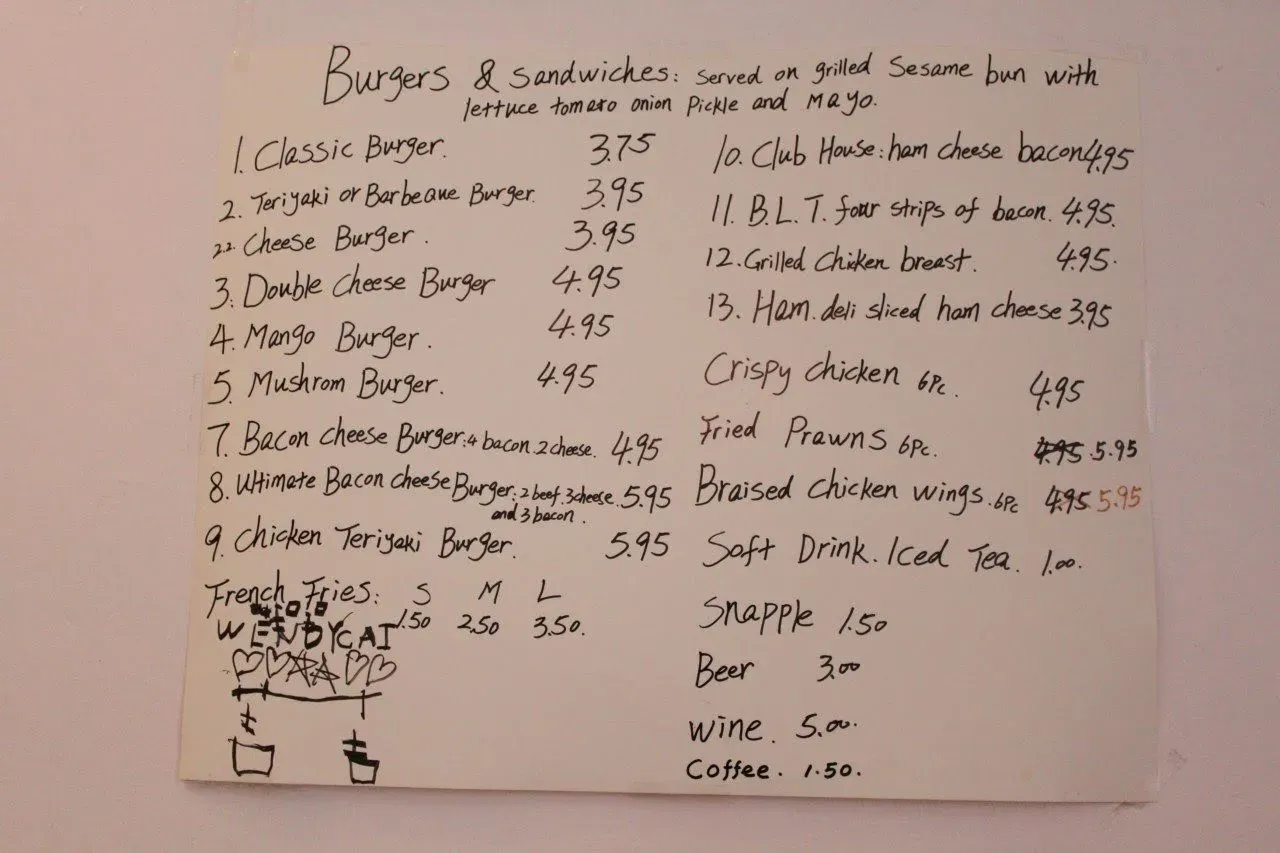 Burgers & Sandwiches: Served on grilled Sesame bun with
lettuce tomato onion Pickle and Mayo.
1. Classic Burger. 3.75
2. Teriyaki or Barbeaue Burger. 3.95
2.2. Cheese Burger. 3.95
3. Double Cheese Burger 4.95
4. Mango Burger. 4.95
5. Mushrom Burger. 4.95
7. Bacon Cheese Burger: 4 bacon. 2 cheese. 4.95
8. Ultimate Bacon cheese Burger: 2 beef. 3 cheese. 5.95
and 3 bacon.
9. Chicken Teriyaki Burger. 5.95
French Fries: S M L
1.50 2.50 3.50.
WENDY CAI
10. Club House: ham cheese bacon 4.95
11. B.L.T. four strips of bacon. 4.95.
12. Grilled Chicken breast. 4.95.
13. Ham. deli sliced ham cheese 3.95
Crispy chicken 6Pc. 4.95
Fried Prawns 6Pc. 4.95 5.95
Braised Chicken wings. 6Pc 4.95 5.95
Soft Drink. Iced Tea. 1.00.
Snapple 1.50
Beer 3.00
Wine. 5.00.
Coffee. 1.50.